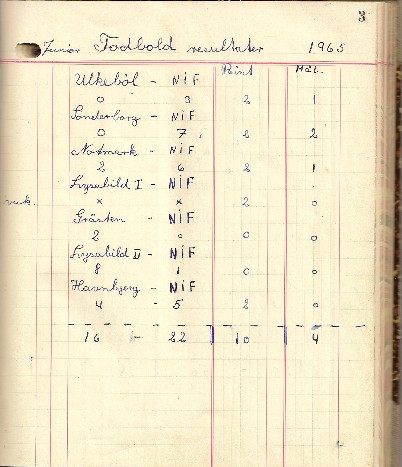 3
Junior Fodbold resultater 1965
Point Hål.
Ulkeböl - NIF
0 3 2 1
Sönderborg - NIF
0 7 2 2
Notmark - NIF
2 6 2 1
Lysabild I - NIF
x x 2 0
Gråsten - NIF
2 0 0 0
Lysabild II - NIF
8 1 0 0
Havnbjerg - NIF
4 - 5 2 0
16 - 22 10 4